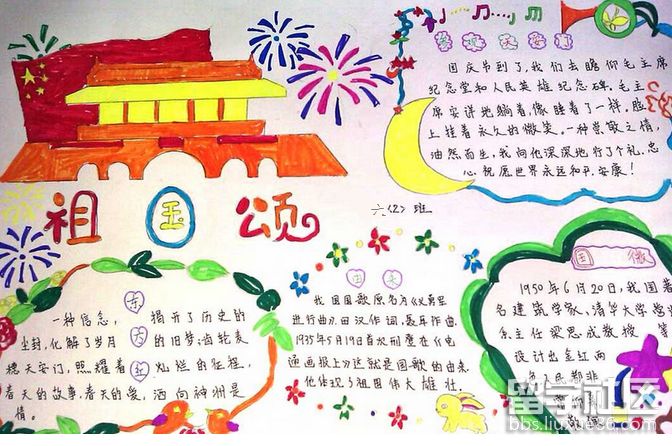 祖国颂
国庆节到了,我们去瞻仰毛主席
纪念堂和人民英雄纪念碑。毛主
席安详地躺着,像睡着了一样。脸
上挂着永久的微笑。一种崇敬之情,
油然而生,我向他深深地行了个礼。忠
心祝愿世界永远和平、安康!
六〈2〉班
东方红
一种信念, 揭开了历史的
尘封,化解了岁月 的旧梦,齿轮麦
穗天安门,照耀着 灿烂的征程,
春天的故事,春天的爱,洒向神州是
情。
由来
我国国歌原名为《义勇军
进行曲》,田汉作词,聂耳作曲.
1935年5月19日首次刑登在《电
通画报上》这就是国歌的由来.
他体现了祖国伟大雄壮.
国徽
1950年6月20日,我国著
名建筑学家、清华大学
系主任梁思成教授
设计出金红两
留学社区
bbs.liuxue86.com